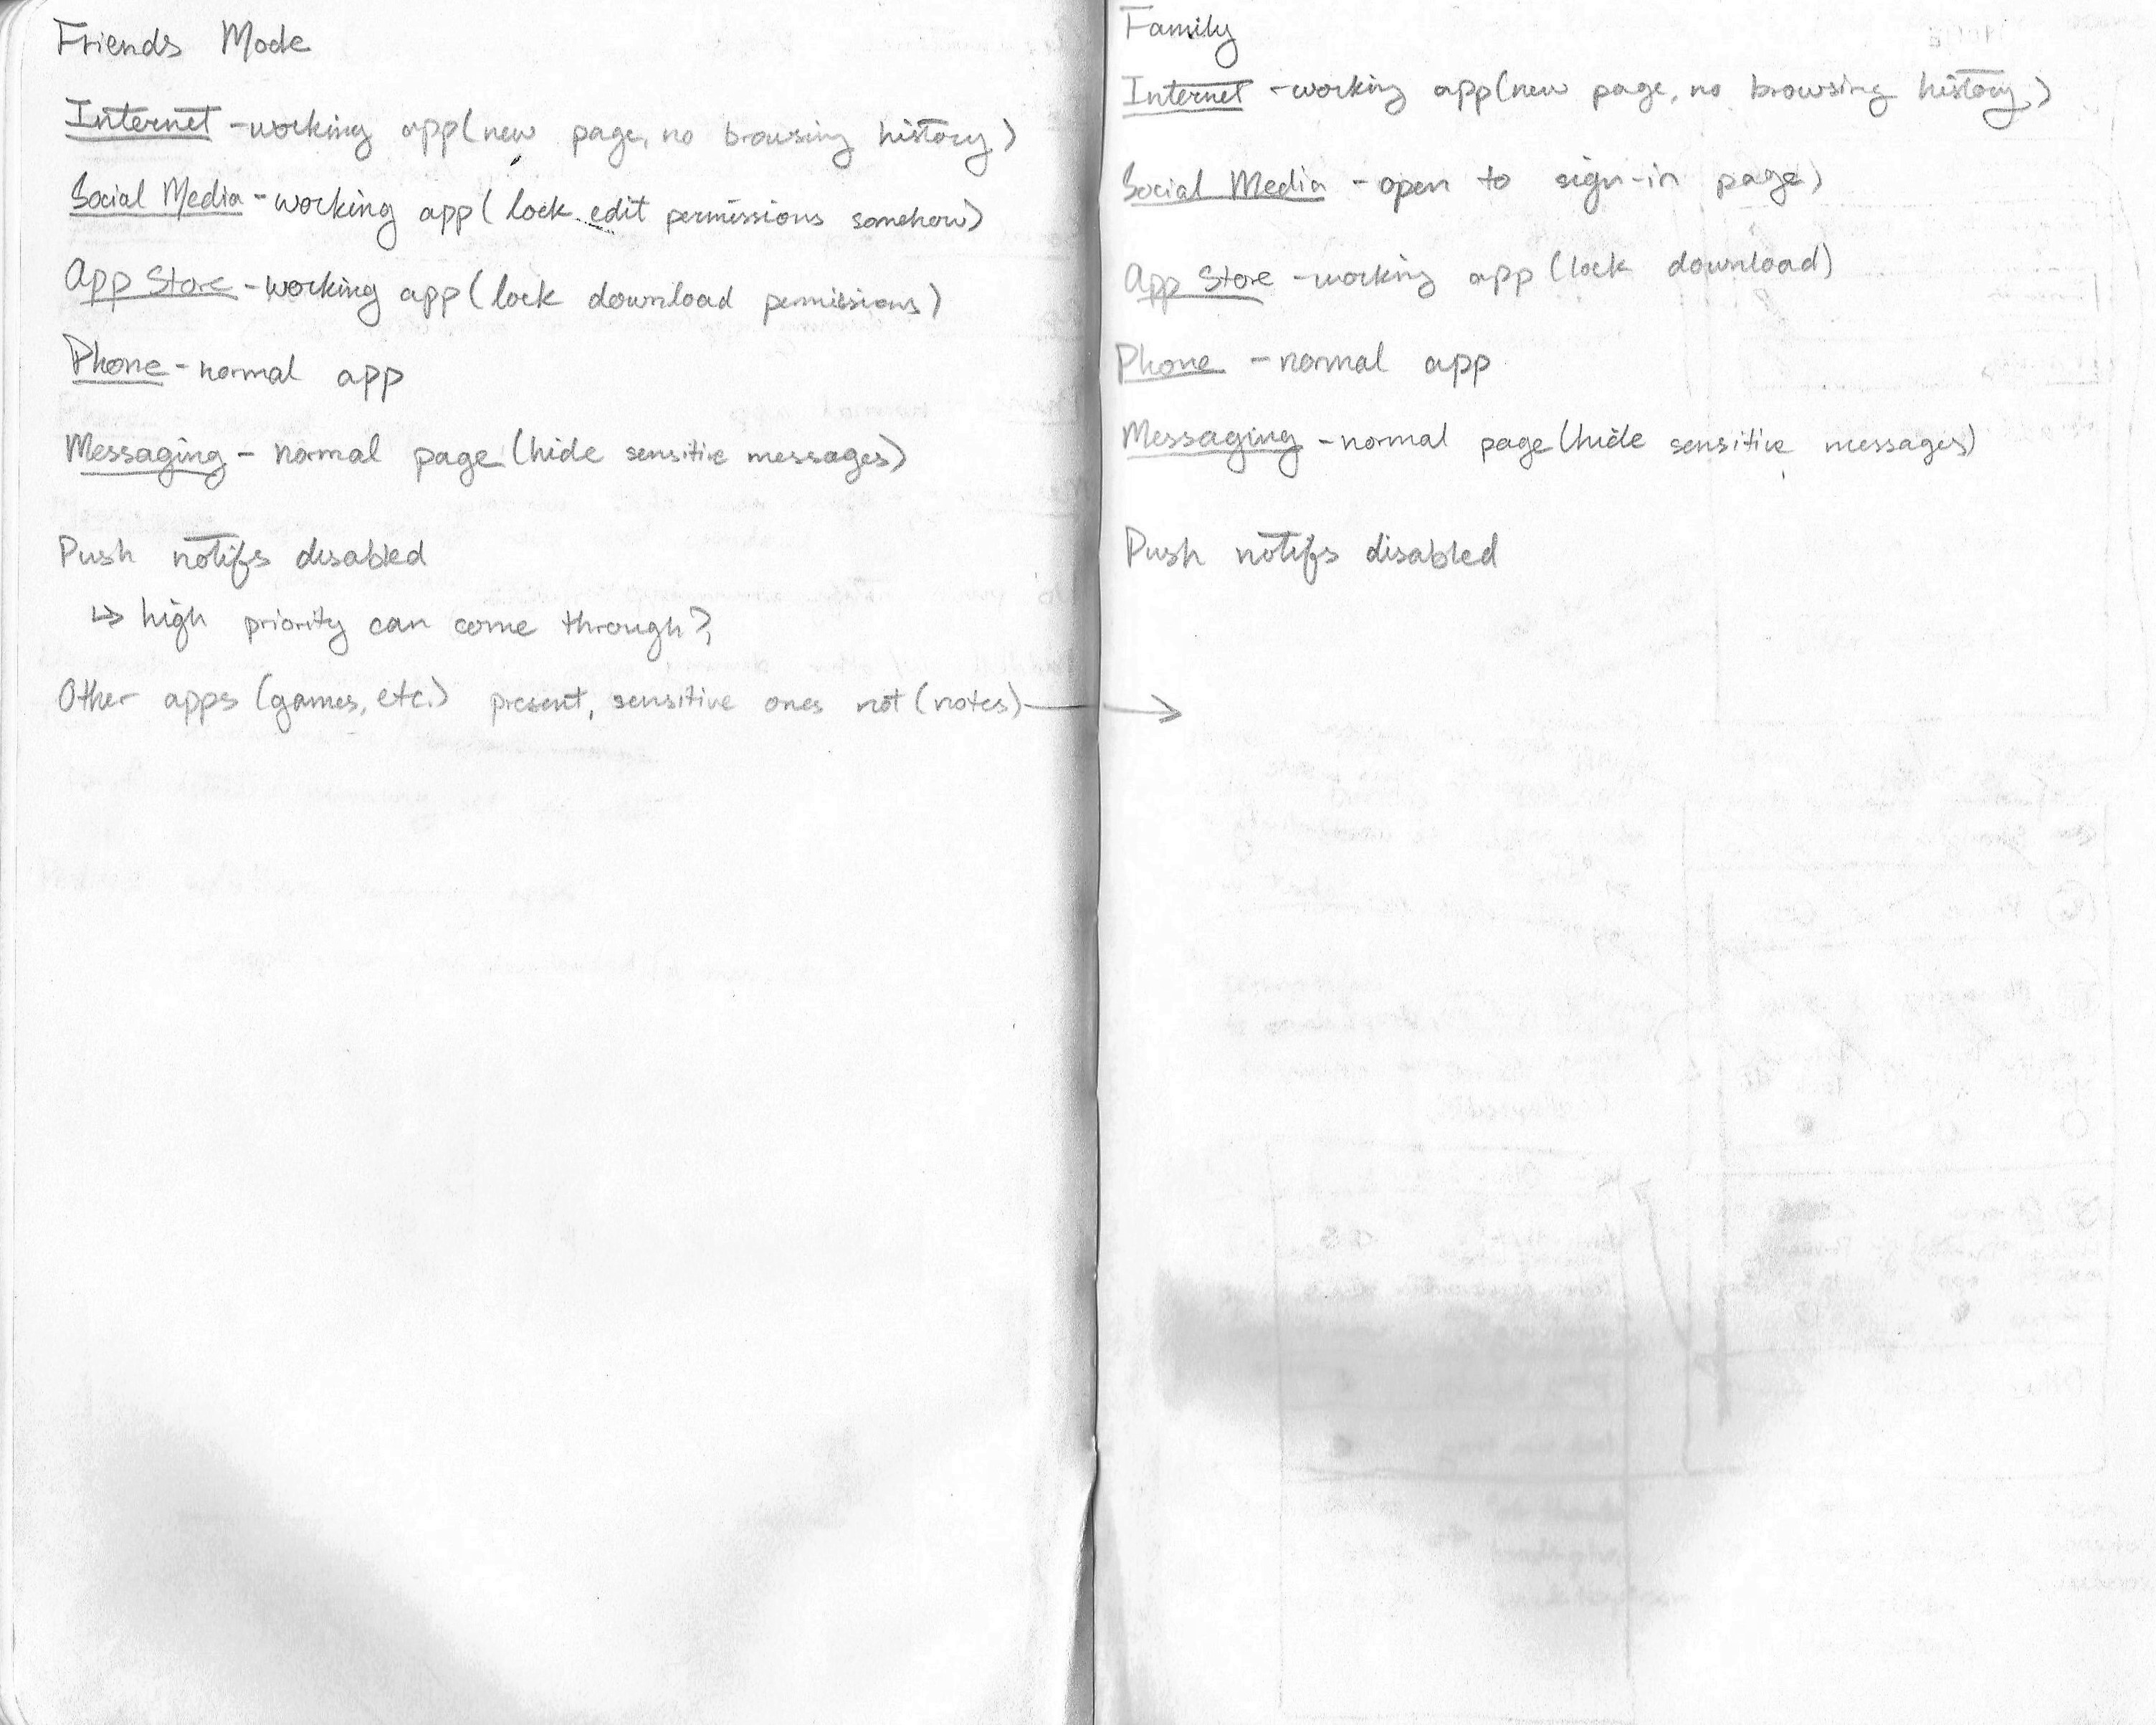 Friends Mode
Internet - working app (new page, no browsing history)
Social Media - working app (lock edit permissions somehow)
App Store - working app (lock download permissions)
Phone - normal app
Messaging - normal page (hide sensitive messages)
Push notifs disabled
↳ high priority can come through?
Other apps (games, etc.) present, sensitive ones not (notes) →
Family
Internet - working app (new page, no browsing history)
Social Media - open to sign-in page)
App Store - working app (lock download)
Phone - normal app
Messaging - normal page (hide sensitive messages)
Push notifs disabled